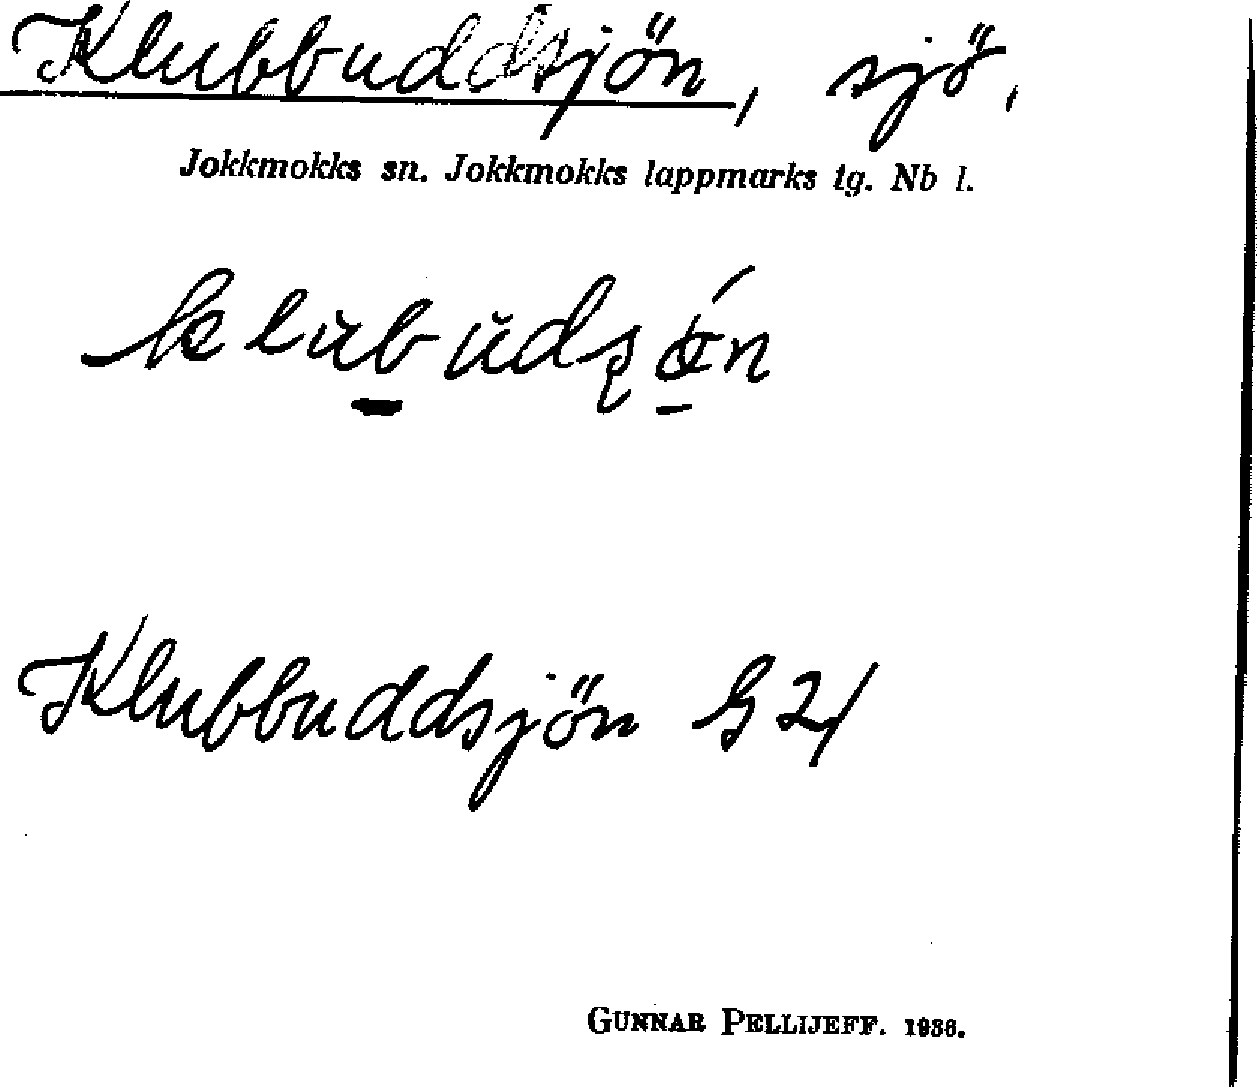 Klubbuddsjön, sjö.
Jokkmokks sn. Jokkmokks lappmarks tg. Nb l.
Klubbuddsjön G 21
GUNNAR PELLIJEFF. 1936.